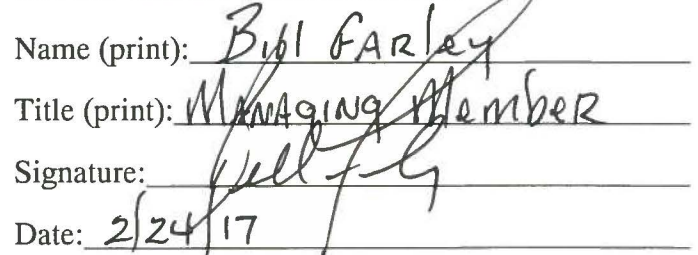 Name (print): Bill FARley
Title (print): MANAgINg MembeR
Signature:
Date: 2/24/17